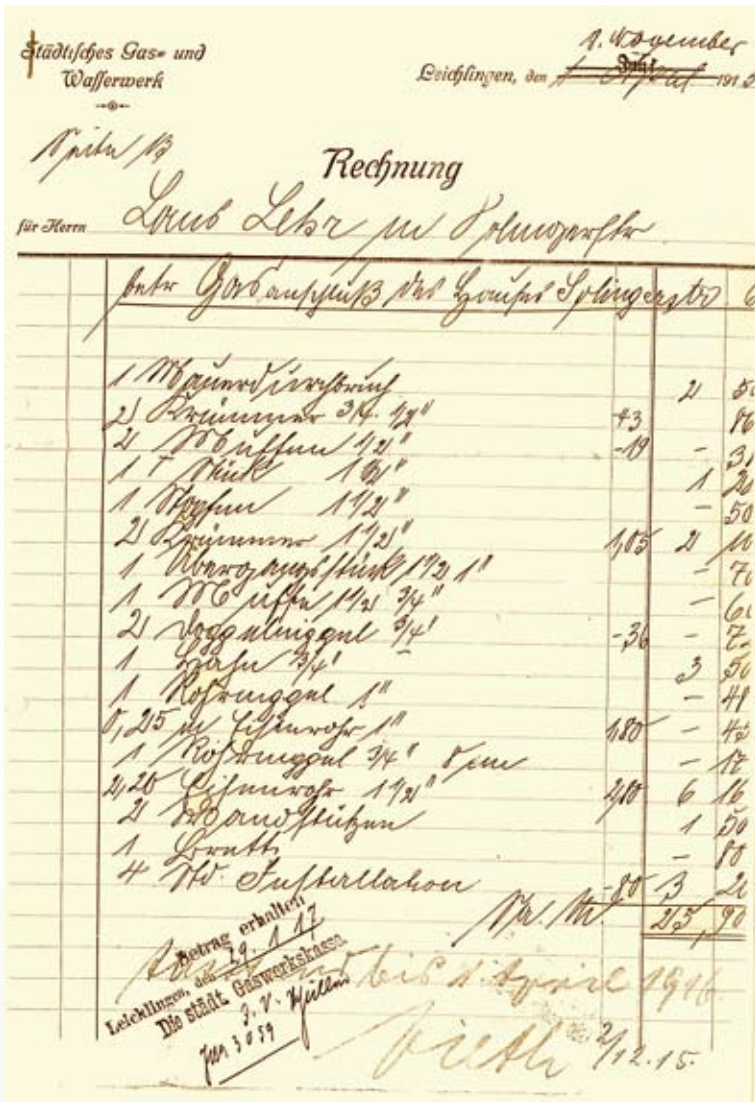 Städtisches Gas- und
Wasserwerk
1. November
Leichlingen, den 191
Seite 13
Rechnung
für Herrn Louis Lehr in Solingerstr
betr Gasanschluß des Hauses Solingerstr
1 Mauerdurchbruch 2 50
2 Krümmer 3/4 1/2" 43 86
2 Muffen 1/2" -19 -
1 T Stück 1 1/2" 1 20
1 Stopfen 1 1/2" - 50
2 Krümmer 1 1/2" 1,05 2 10
1 Übergangsstück 1 1/2 1" - 70
1 Muffe 1 1/2 3/4" -
2 Doppelnippel 3/4" -36 - 72
1 Hahn 3/4" 3 50
1 Rohrnippel 1" -
0,25 m Eisenrohr 1" 1,80 - 45
1 Rohrnippel 3/4" - 17
2,20 Eisenrohr 1 1/2" 2,80 6 16
2 Wandstützen 1 50
1 Brett - 80
4 Std. Installation -80 3 20
Sa. M. 25,90
Betrag erhalten
Leichlingen, den 29.1.17
Die städt. Gaswerkskasse
J. V. Müller
3059
bis 1 April 1916
2/12.15.